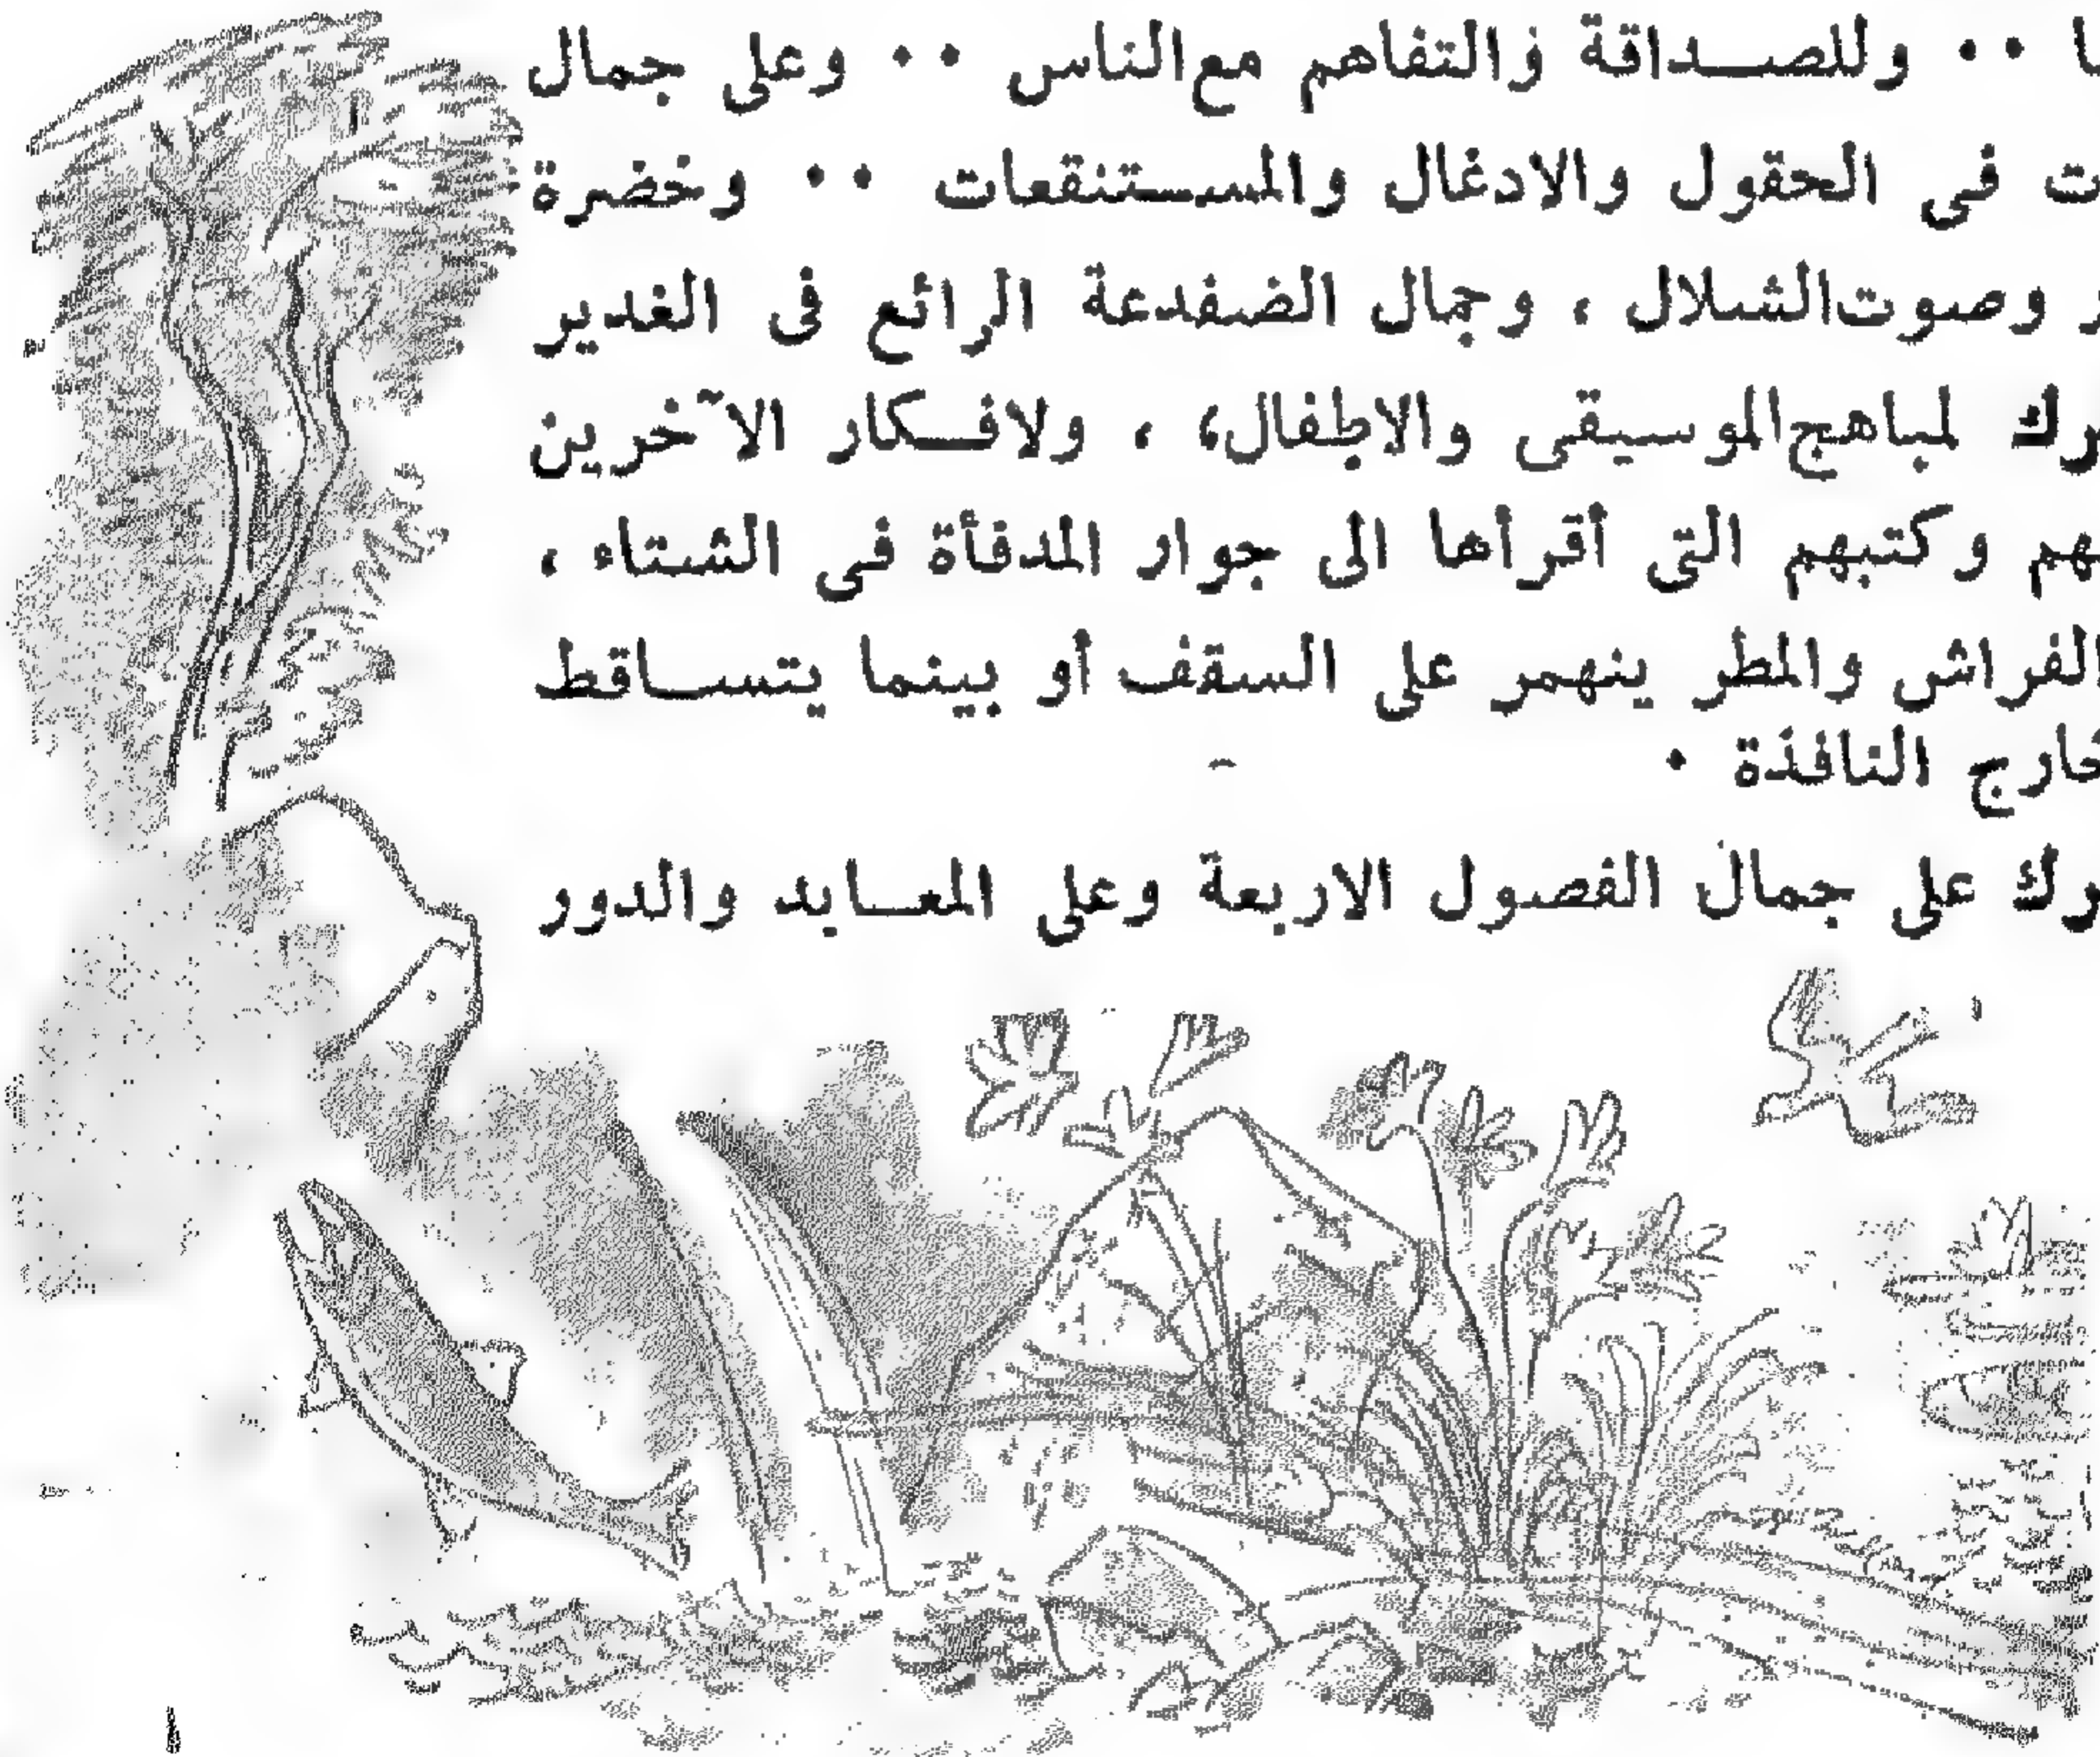 ا ٠٠ وللصداقة والتفاهم مع الناس ٠٠ وعلى جمال
ت فى الحقول والادغال والمستنقعات ٠٠ وخضرة
ر وصوت الشلال ، وجمال الضفدعة الرائع فى الغدير
رك لمباهج الموسيقى والاطفال، ، ولافكار الآخرين
هم وكتبهم التى أقرأها الى جوار المدفأة فى الشتاء ،
الفراش والمطر ينهمر على السقف أو بينما يتساقط
خارج النافذة ٠
رك على جمال الفصول الاربعة وعلى المعابد والدور